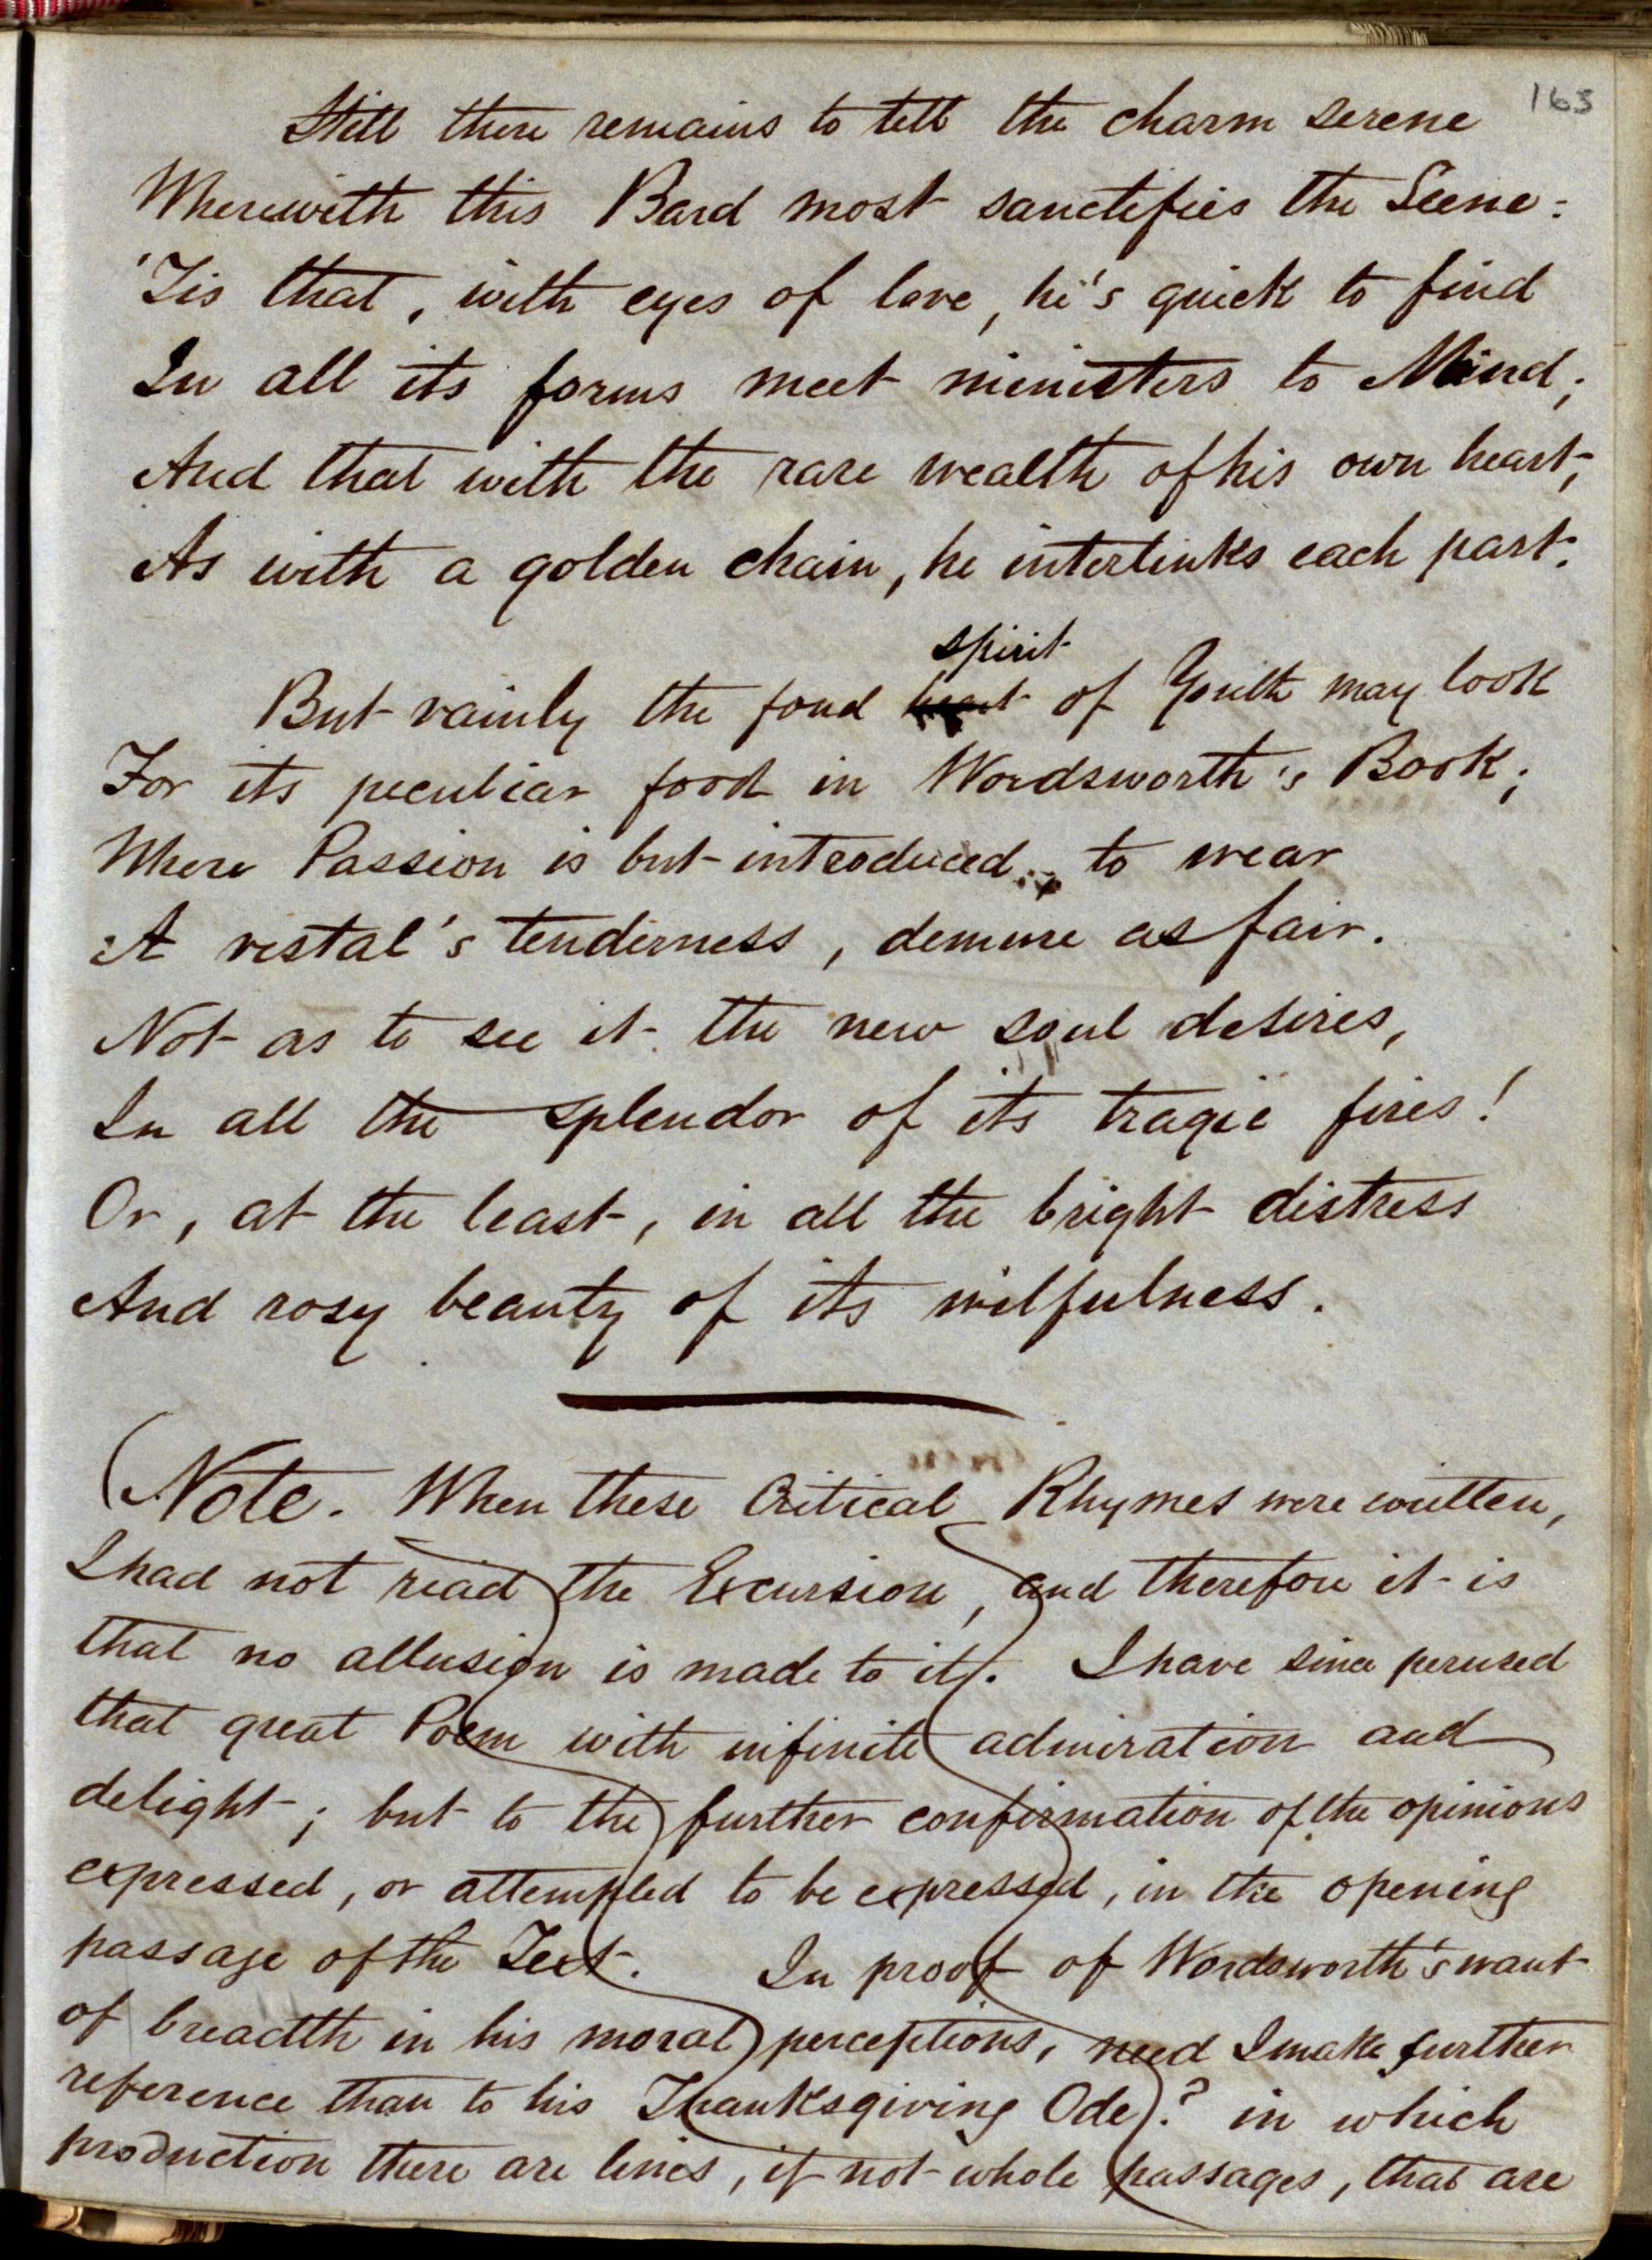 163
Still there remains to tell the charm serene
Wherewith this Bard most sanctifies the Scene:
'Tis that, with eyes of love, he's quick to find
In all its forms meet ministers to Mind;
And that with the rare wealth of his own heart,
As with a golden chain, he interlinks each part.
spirit
But vainly the fond heart of Youth may look
For its peculiar food in Wordsworth's Book;
Where Passion is but introduced to wear
A vestal's tenderness, demure as fair.
Not as to see it the new soul desires,
In all the splendor of its tragic fires!
Or, at the least, in all the bright distress
And rosy beauty of its wilfulness.
(Note. When these Critical Rhymes were written,
I had not read the Excursion, and therefore it is
that no allusion is made to it. I have since perused
that great Poem with infinite admiration and
delight; but to the further confirmation of the opinions
expressed, or attempted to be expressed, in the opening
passage of the Text. In proof of Wordsworth's want
of breadth in his moral perceptions, need I make further
reference than to his Thanksgiving Ode? in which
production there are lines, if not whole passages, that are